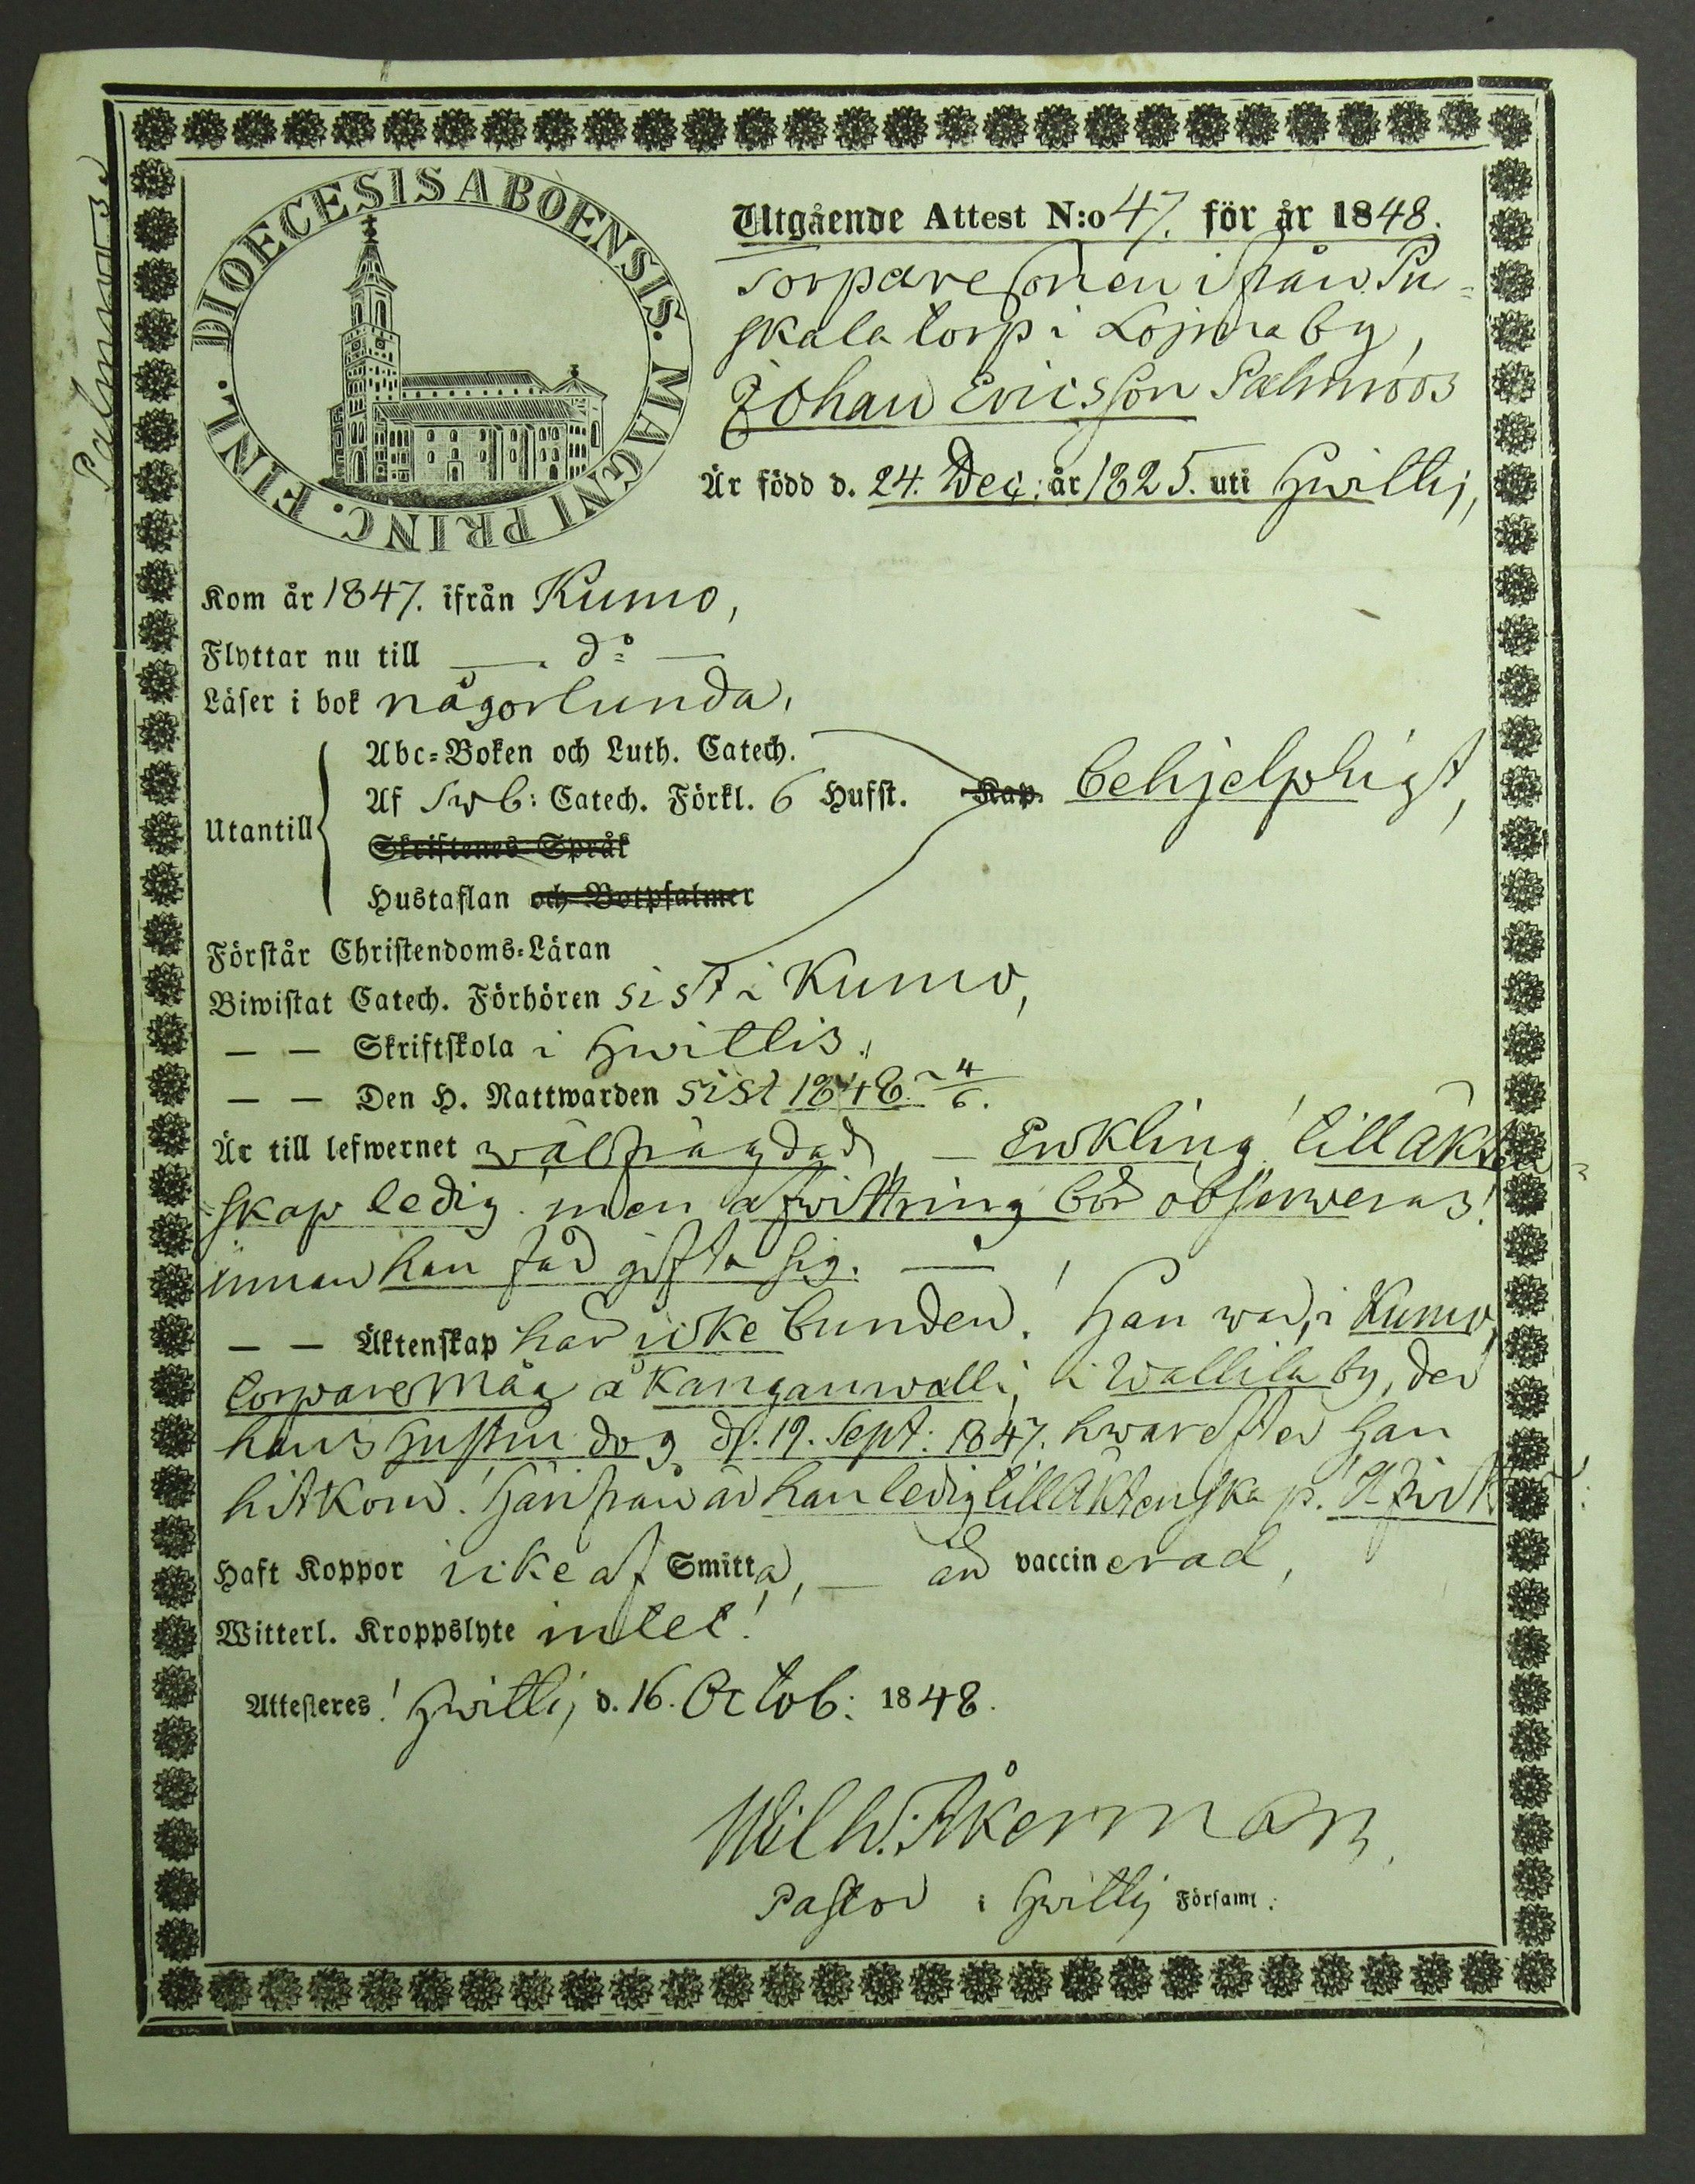 Palmroos
DIOECESIS ABOENSIS. MAGNI PRINC. FINL.
Utgående Attest N:o 47. för år 1848.
Torparesonen ifrån Pu-
skala torp i Loima by,
Johan Ericsson Palmroos
Är född d. 24. Dec: år 1825. uti Hwittis,
Kom år 1847. ifrån Kumo,
Flyttar nu till — d:o —
Läser i bok någorlunda,
Abc-Boken och Luth. Catech.
Af Swb: Catech. Förkl. 6 Hufst. Kap. behjelpligt,
Utantill
Skriftenes Språk
Hustaflan och Botpsalmer
Förstår Christendoms-Läran
Biwistat Catech. Förhören sist i Kumo,
— — Skriftskola i Hwittis,
— — Den H. Nattwarden sist 1848 4/6.
Är till lefwernet wälfrägdad, — Enkling! till äkten-
skap ledig. men afwittring bör observeras!
innan han får gifta sig. —
— — Äktenskap har icke bunden! Han war, i Kumo,
torparemåg å Kanganwalli, i Wallila by, der
hans hustru dog d. 19. Sept: 1847. hwarefter han
hitkom! Härifrån är han ledig till Äktenskap!
Haft Koppor icke af Smitta, — är vaccinerad,
Witterl. Kroppslyte intet!
Attesteres! Hwittis d. 16. Octob: 1848.
Wilh: Åkerman
Pastor i Hwittis Församl: